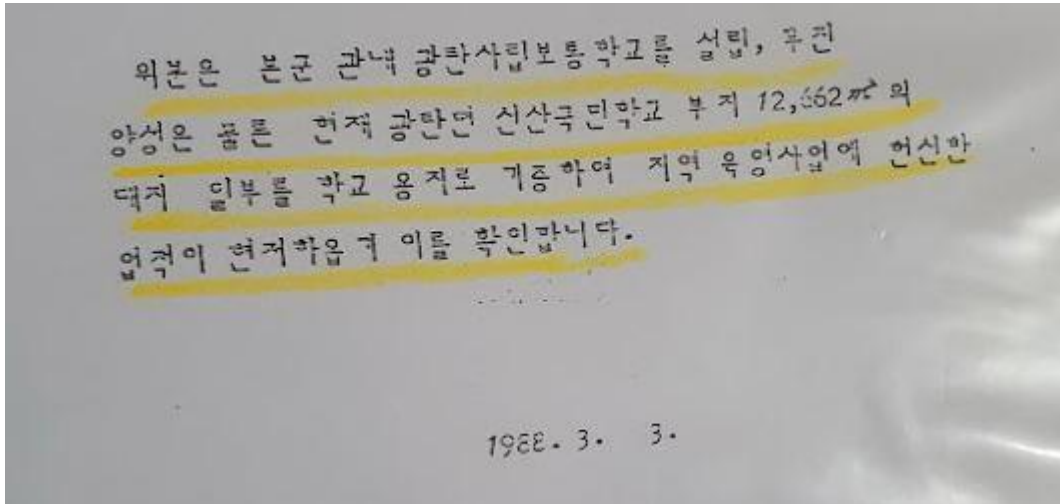 위분은 본군 관내 광탄사립보통학교를 설립, 후진
양성은 물론 현재 광탄면 신산국민학교 부지 12,662㎡의
대지 일부를 학교 용지로 기증하여 지역 육영사업에 헌신한
업적이 현저하옵기 이를 확인합니다.
1988. 3. 3.